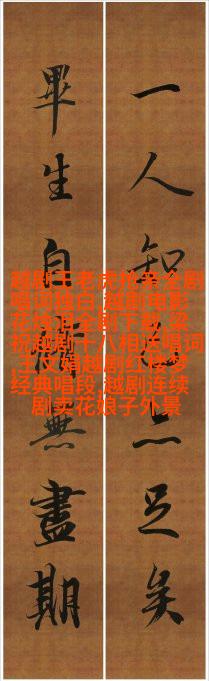 一人知亦足矣
畢生自無盡期
越剧王老虎抢亲全剧
唱词独白,越剧电影
花烛泪全剧下载,梁
祝越剧十八相送唱词
,王文娟越剧红楼梦
经典唱段,越剧连续
剧卖花娘子外景